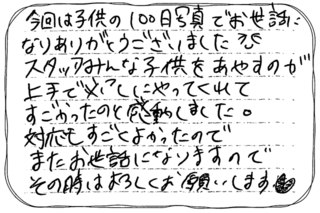 今回は子供の100日写真でお世話に
なりありがとうございました
スタッフみんな子供をあやすのが
上手で必死にやってくれて
すごかったのと感動しました。
対応もすごくよかったので
またお世話になりますので
その時はよろしくお願いします